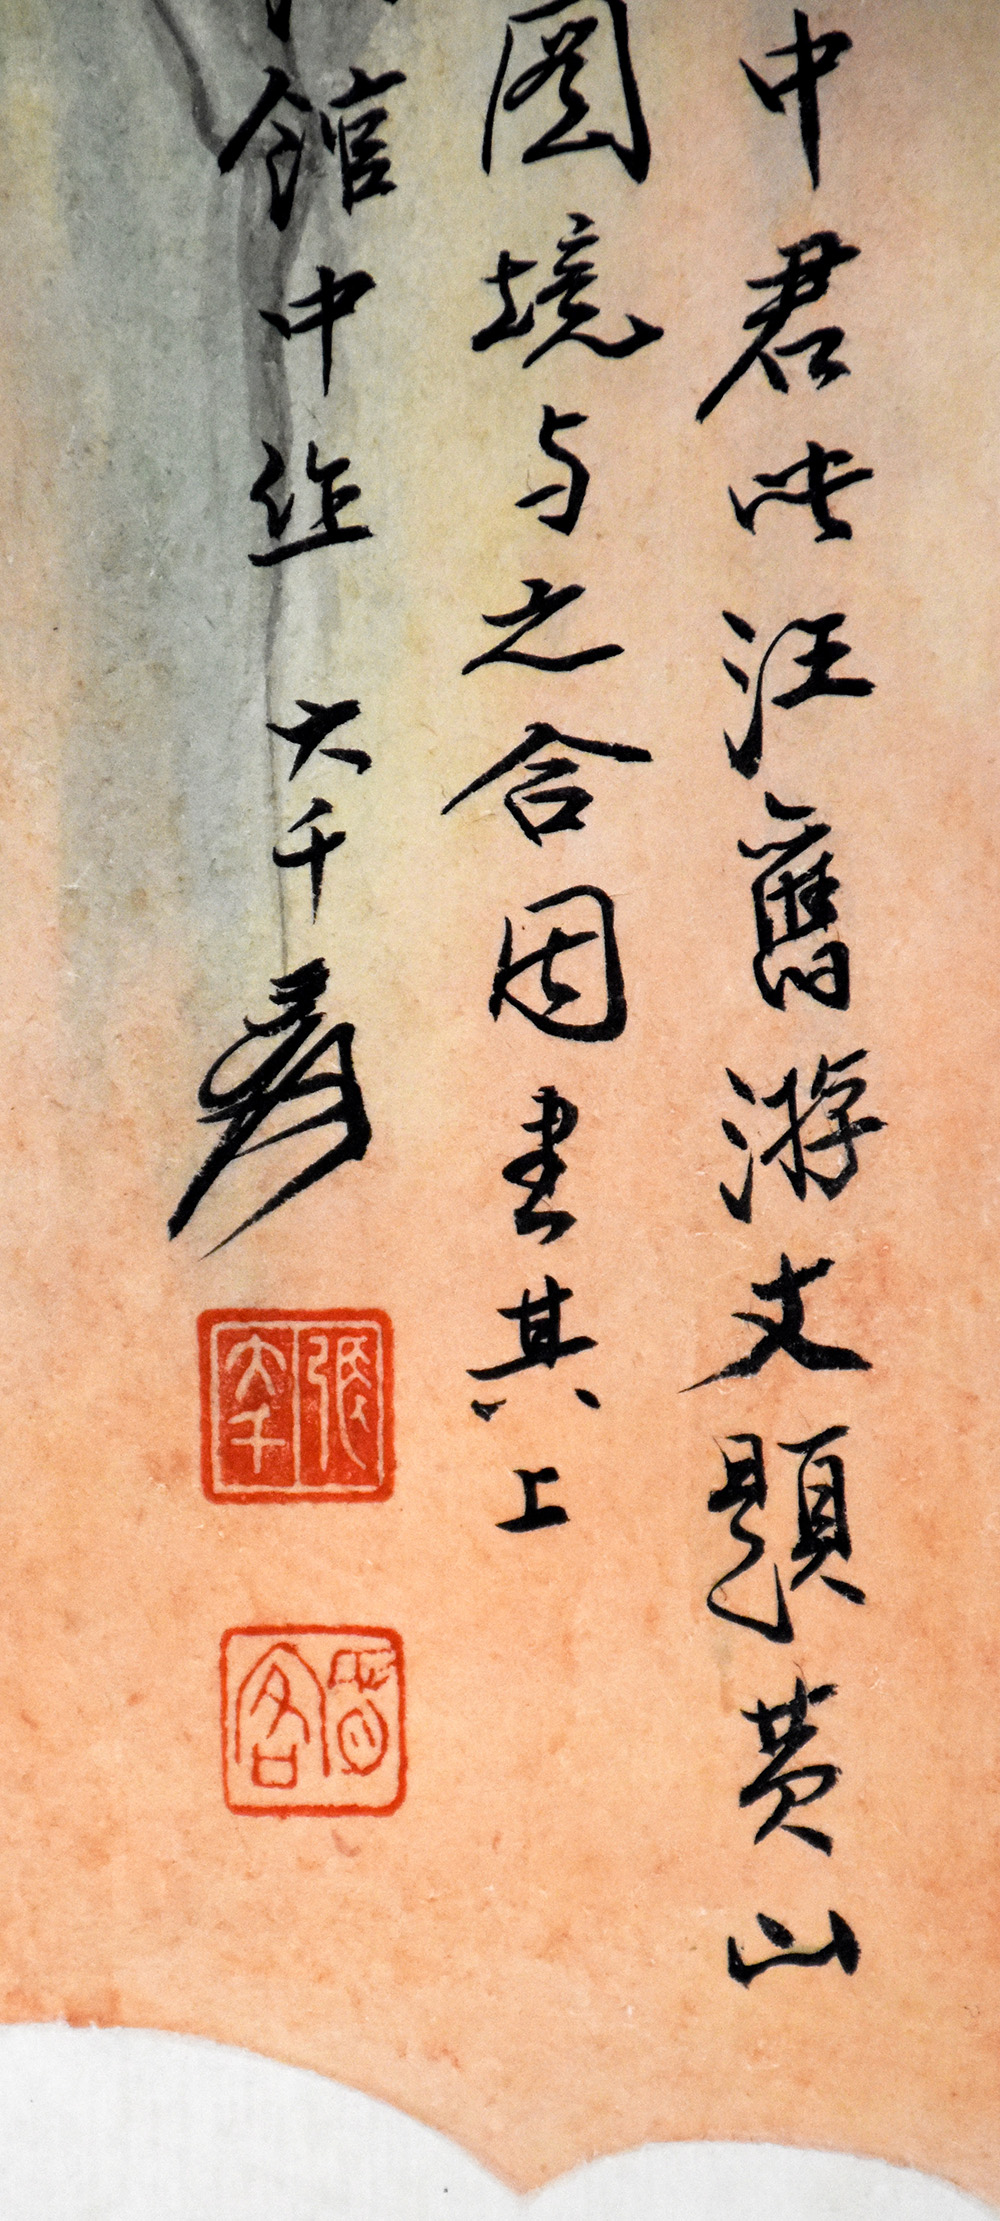 中君此汪舊游丈題黄山
圖境与之合因書其上
館中作 大千爰
張大千
昔客